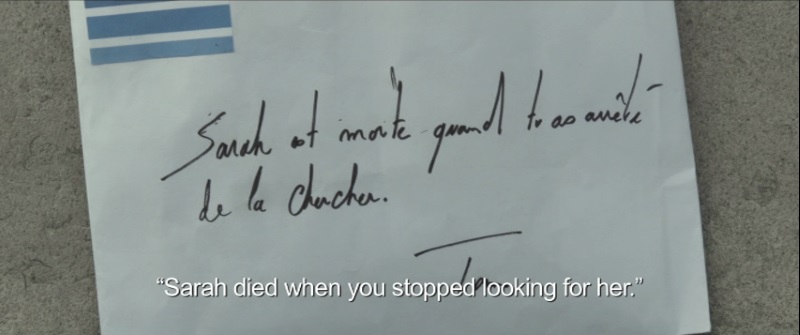 Sarah est morte quand tu as arrêté
de la chercher.
“Sarah died when you stopped looking for her.”